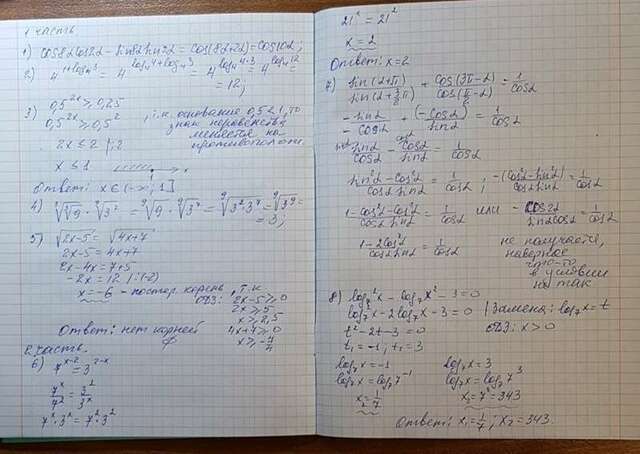 1 часть
1) cos8α cos2α - sin8α sin2α = cos(8α+2α) = cos10α;
2) 4^(1+log₄3) = 4^(log₄4+log₄3) = 4^(log₄4·3) = 4^(log₄12) = 12;
3) 0,5^(2x) ≥ 0,25
0,5^(2x) ≥ 0,5², т.к. основание 0,5<1, то
знак неравенства
меняется на
противополож.
2x ≤ 2 |:2
x ≤ 1
Ответ: x ∈ (-∞; 1]
4) ∛9 · ⁹√3² = ⁹√9 · ⁹√3² = ⁹√3²3⁷ = ⁹√3⁹ = 3;
5) √2x-5 = √4x+7
2x-5 = 4x+7
2x-4x = 7+5
-2x = 12 |:(-2)
x = -6 - постор. корень, т.к.
ОДЗ: 2x-5 ≥ 0
2x ≥ 5
x ≥ 2,5
4x+7 ≥ 0
x ≥ -7/4
Ответ: нет корней
∅
2 часть.
6) 7^(x-2) = 3^(2-x)
7^x/7² = 3²/3^x
7^x · 3^x = 7² · 3²
21^x = 21²
x = 2
Ответ: x=2
7) sin(α+π)/sin(α+3/2π) + cos(3π-α)/cos(π/2-α) = 1/cosα
-sinα/-cosα + (-cosα)/sinα = 1/cosα
sinα/cosα - cosα/sinα = 1/cosα
sin²α-cos²α/cosα sinα = 1/cosα; -(cos²α-sin²α)/cosα sinα = 1/cosα
1-cos²α-cos²α/cosα sinα = 1/cosα или -cos2α/sinα cosα = 1/cosα
1-2cos²α/cosα sinα = 1/cosα
не получается,
наверное
что-то
в условии
не так
8) log₇²x - log₇x² - 3 = 0
log₇²x - 2log₇x - 3 = 0 | Замена: log₇x = t
t² - 2t - 3 = 0 ОДЗ: x > 0
t₁ = -1; t₂ = 3
log₇x = -1 log₇x = 3
log₇x = log₇7⁻¹ log₇x = log₇7³
x = 1/7 x = 7³ = 343
Ответ: x₁ = 1/7; x₂ = 343.